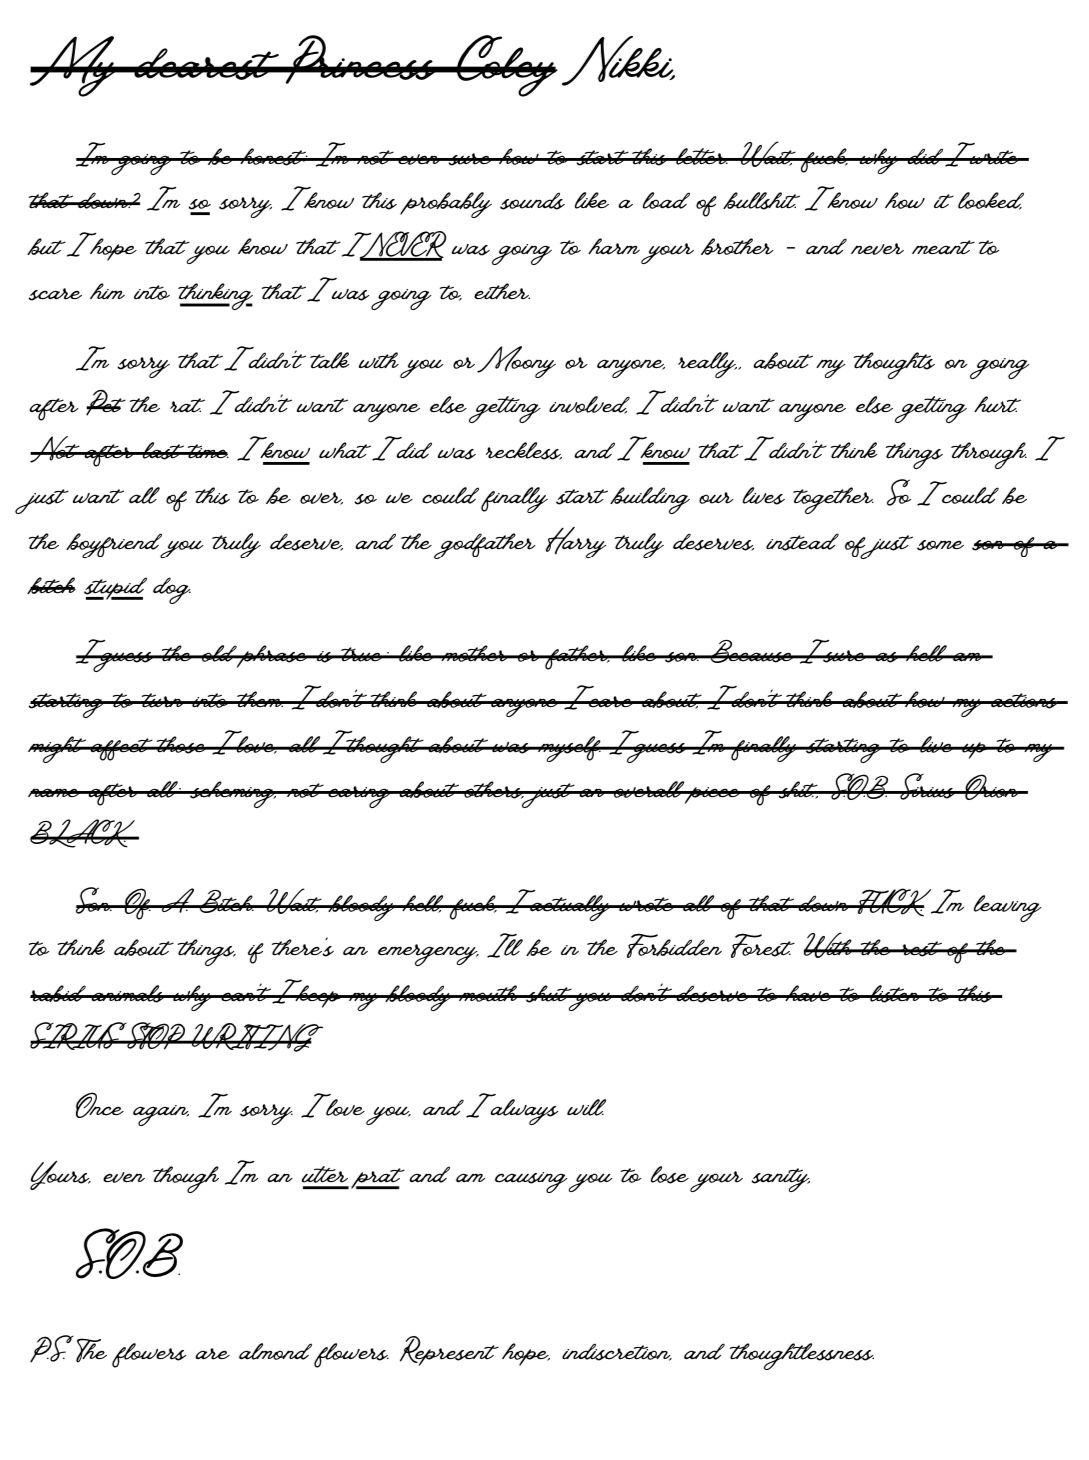 My dearest Princess Coley Nikki,
Im going to be honest: Im not even sure how to start this letter. Wait, fuck, why did I write
that down? Im so sorry, I know this probably sounds like a load of bullshit. I know how it looked,
but I hope that you know that I NEVER was going to harm your brother - and never meant to
scare him into thinking that I was going to, either.
Im sorry that I didn't talk with you or Moony or anyone, really,, about my thoughts on going
after Pet the rat. I didn't want anyone else getting involved, I didn't want anyone else getting hurt.
Not after last time. I know what I did was reckless, and I know that I didn't think things through. I
just want all of this to be over, so we could finally start building our lives together. So I could be
the boyfriend you truly deserve, and the godfather Harry truly deserves, instead of just some son of a
bitch stupid dog.
I guess the old phrase is true: like mother or father, like son. Because I sure as hell am
starting to turn into them. I don't think about anyone I care about, I don't think about how my actions
might affect those I love, all I thought about was myself. I guess Im finally starting to live up to my
name after all: scheming, not caring about others, just an overall piece of shit., S.O.B. Sirius Orion
BLACK.
Son. Of. A. Bitch. Wait, bloody hell, fuck, I actually wrote all of that down FUCK. Im leaving
to think about things, if there's an emergency, Ill be in the Forbidden Forest. With the rest of the
rabid animals why can't I keep my bloody mouth shut you don't deserve to have to listen to this
SIRIUS STOP WRITING
Once again, Im sorry. I love you, and I always will.
Yours, even though Im an utter prat and am causing you to lose your sanity,
S.O.B.
P.S. The flowers are almond flowers. Represent hope, indiscretion, and thoughtlessness.